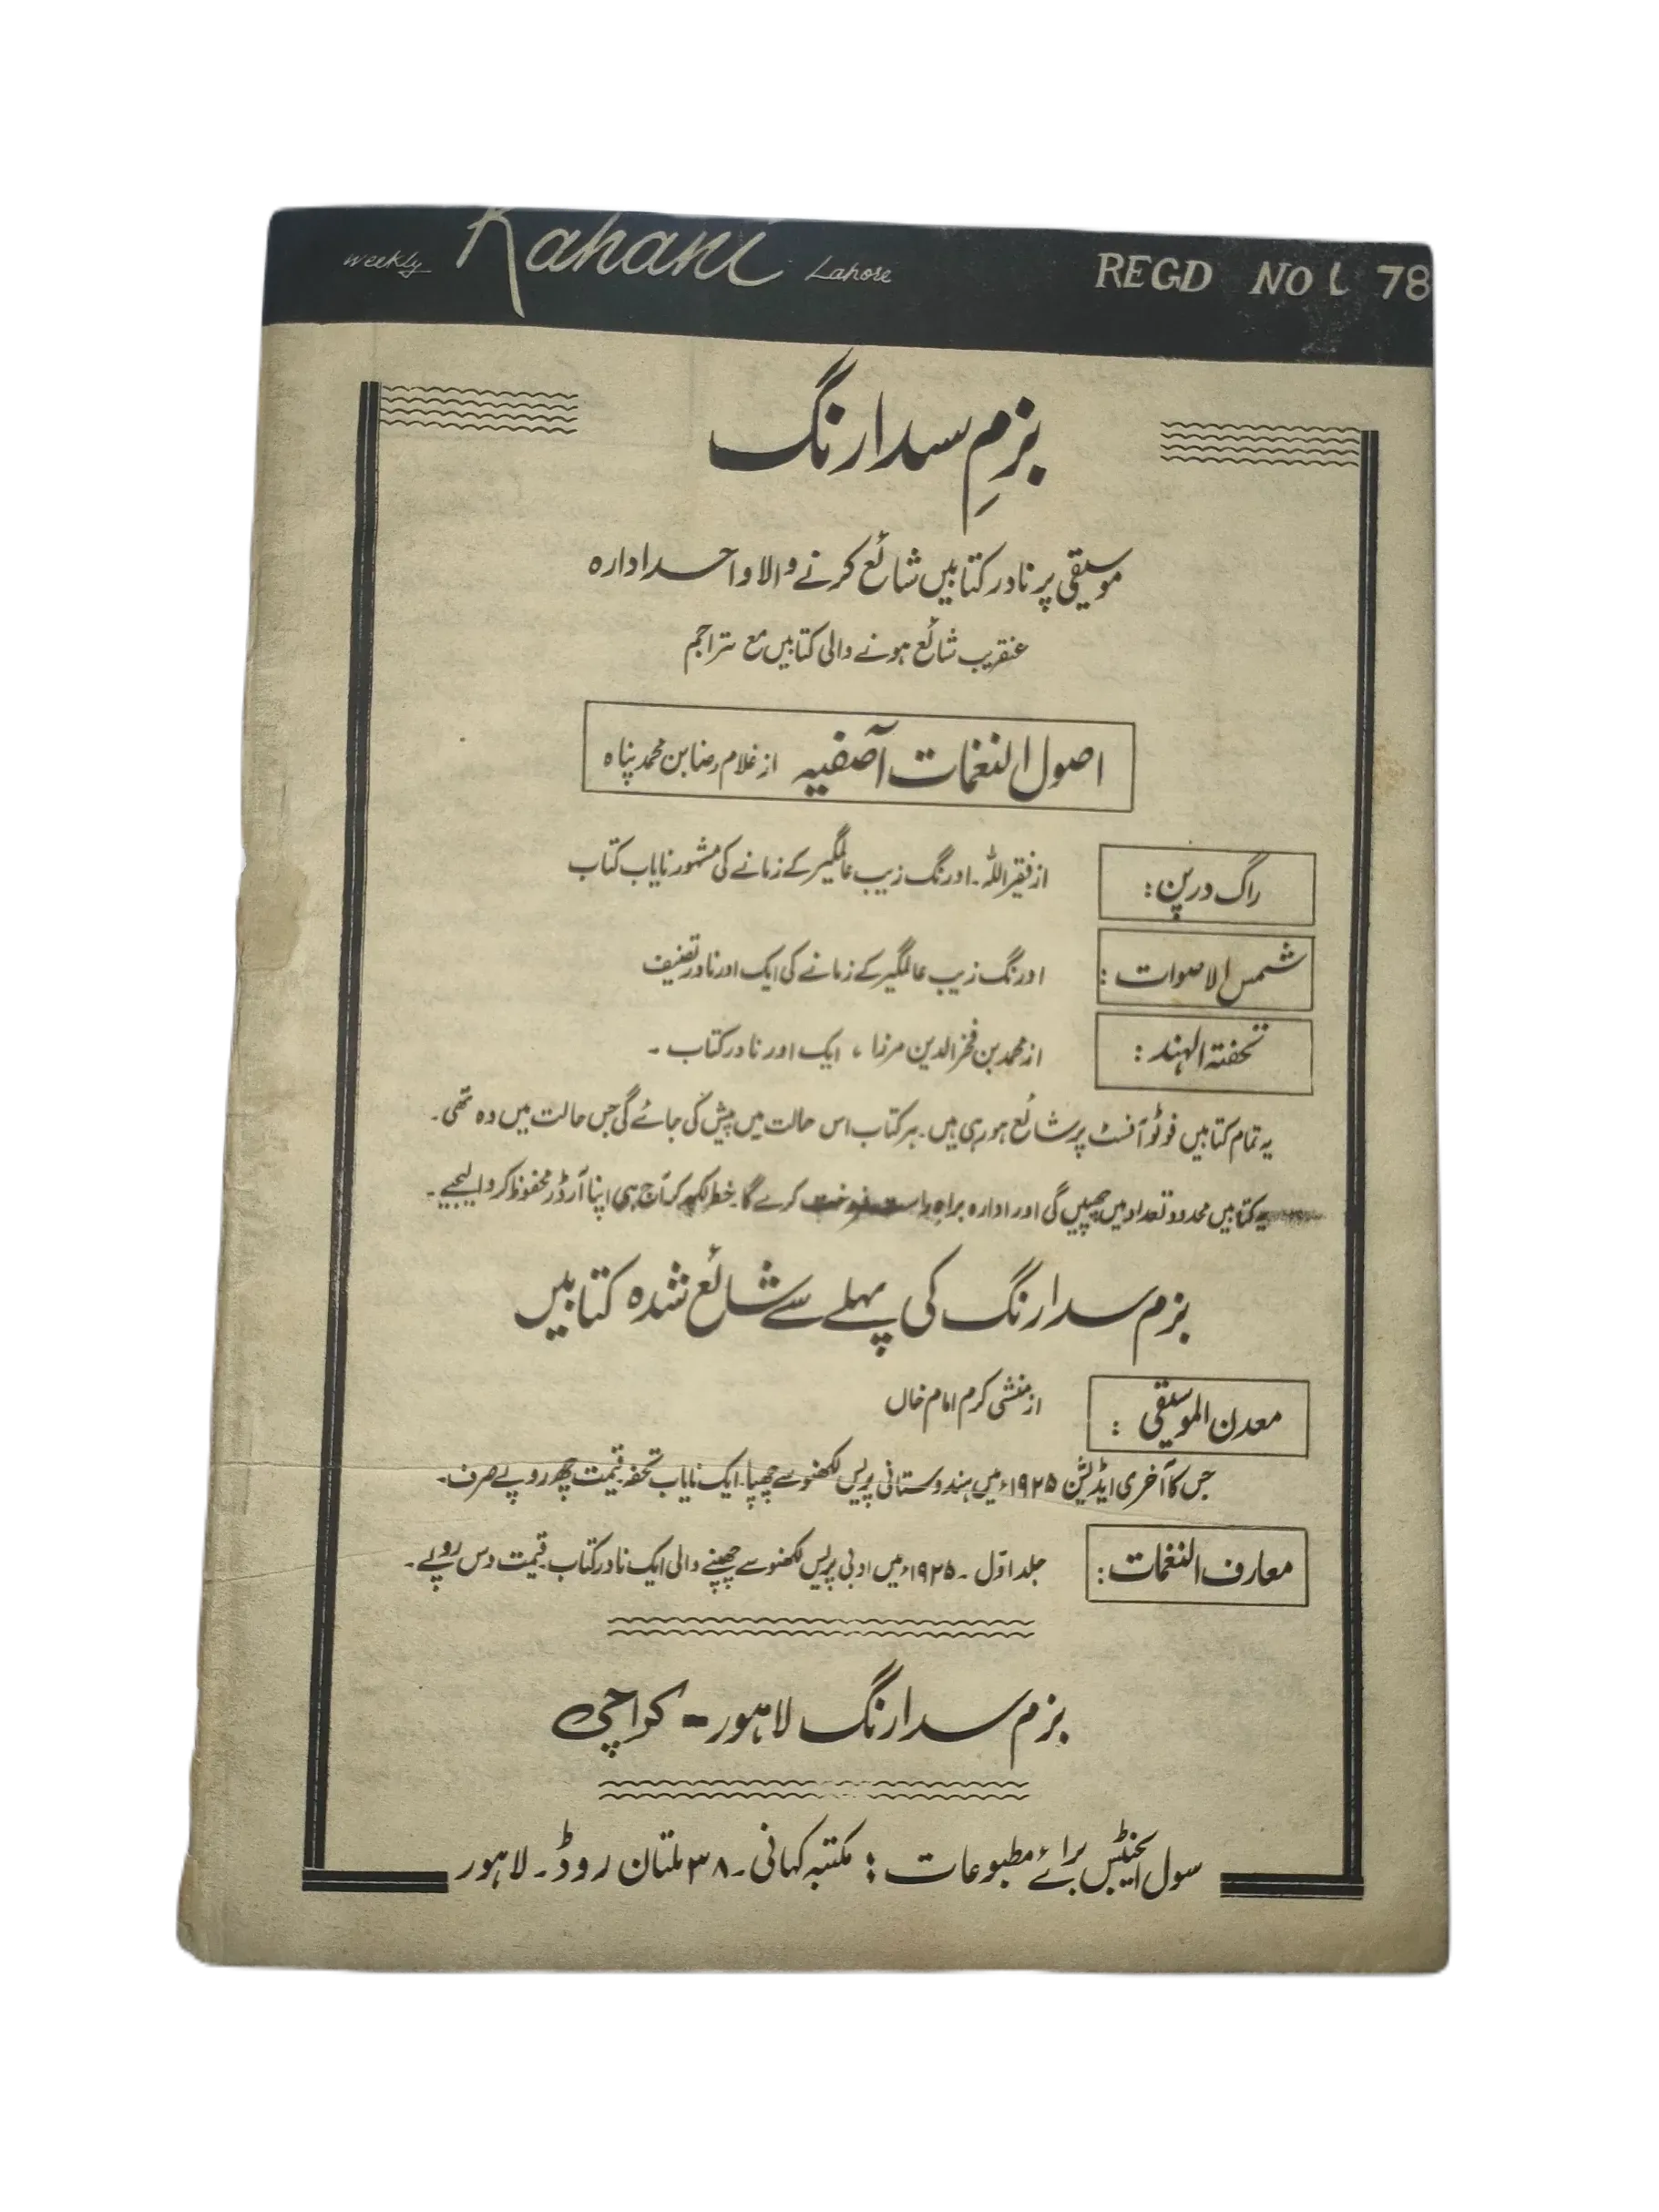 weekly Kahani Lahore REGD NO L 78
بزمِ سدارنگ
موسیقی پر نادر کتابیں شائع کرنے والا واحد ادارہ
عنقریب شائع ہونے والی کتابیں مع تراجم
اصول النغمات آصفیہ از غلام رضا بن محمد پناہ
راگ درپن: از فقیر اللہ۔ اورنگ زیب عالمگیر کے زمانے کی مشہور نایاب کتاب
شمس الاصوات: اورنگ زیب عالمگیر کے زمانے کی ایک اور نادر تصنیف
تحفتہ الہند: از محمد بن فخر الدین مرزا، ایک اور نادر کتاب۔
یہ تمام کتابیں فوٹو آفسٹ پر شائع ہو رہی ہیں۔ ہر کتاب اس حالت میں پیش کی جائے گی جس حالت میں وہ تھی۔
یہ کتابیں محدود تعداد میں چھپیں گی اور ادارہ براہ راست فروخت کرے گا۔ خط لکھ کر آج ہی اپنا آرڈر محفوظ کروا لیجیے۔
بزم سدارنگ کی پہلے سے شائع شدہ کتابیں
معدن الموسیقی: از منشی کرم امام خاں
جس کا آخری ایڈیشن ۱۹۲۵ء میں ہندوستانی پریس لکھنو سے چھپا۔ ایک نایاب تحفہ قیمت چھ روپے صرف۔
معارف النغمات: جلد اوّل۔ ۱۹۲۵ء میں ادبی پریس لکھنو سے چھپنے والی ایک نادر کتاب۔ قیمت دس روپے۔
بزم سدارنگ لاہور - کراچی
سول ایجنٹس برائے مطبوعات: مکتبہ کہانی۔ ۳۸ ملتان روڈ۔ لاہور